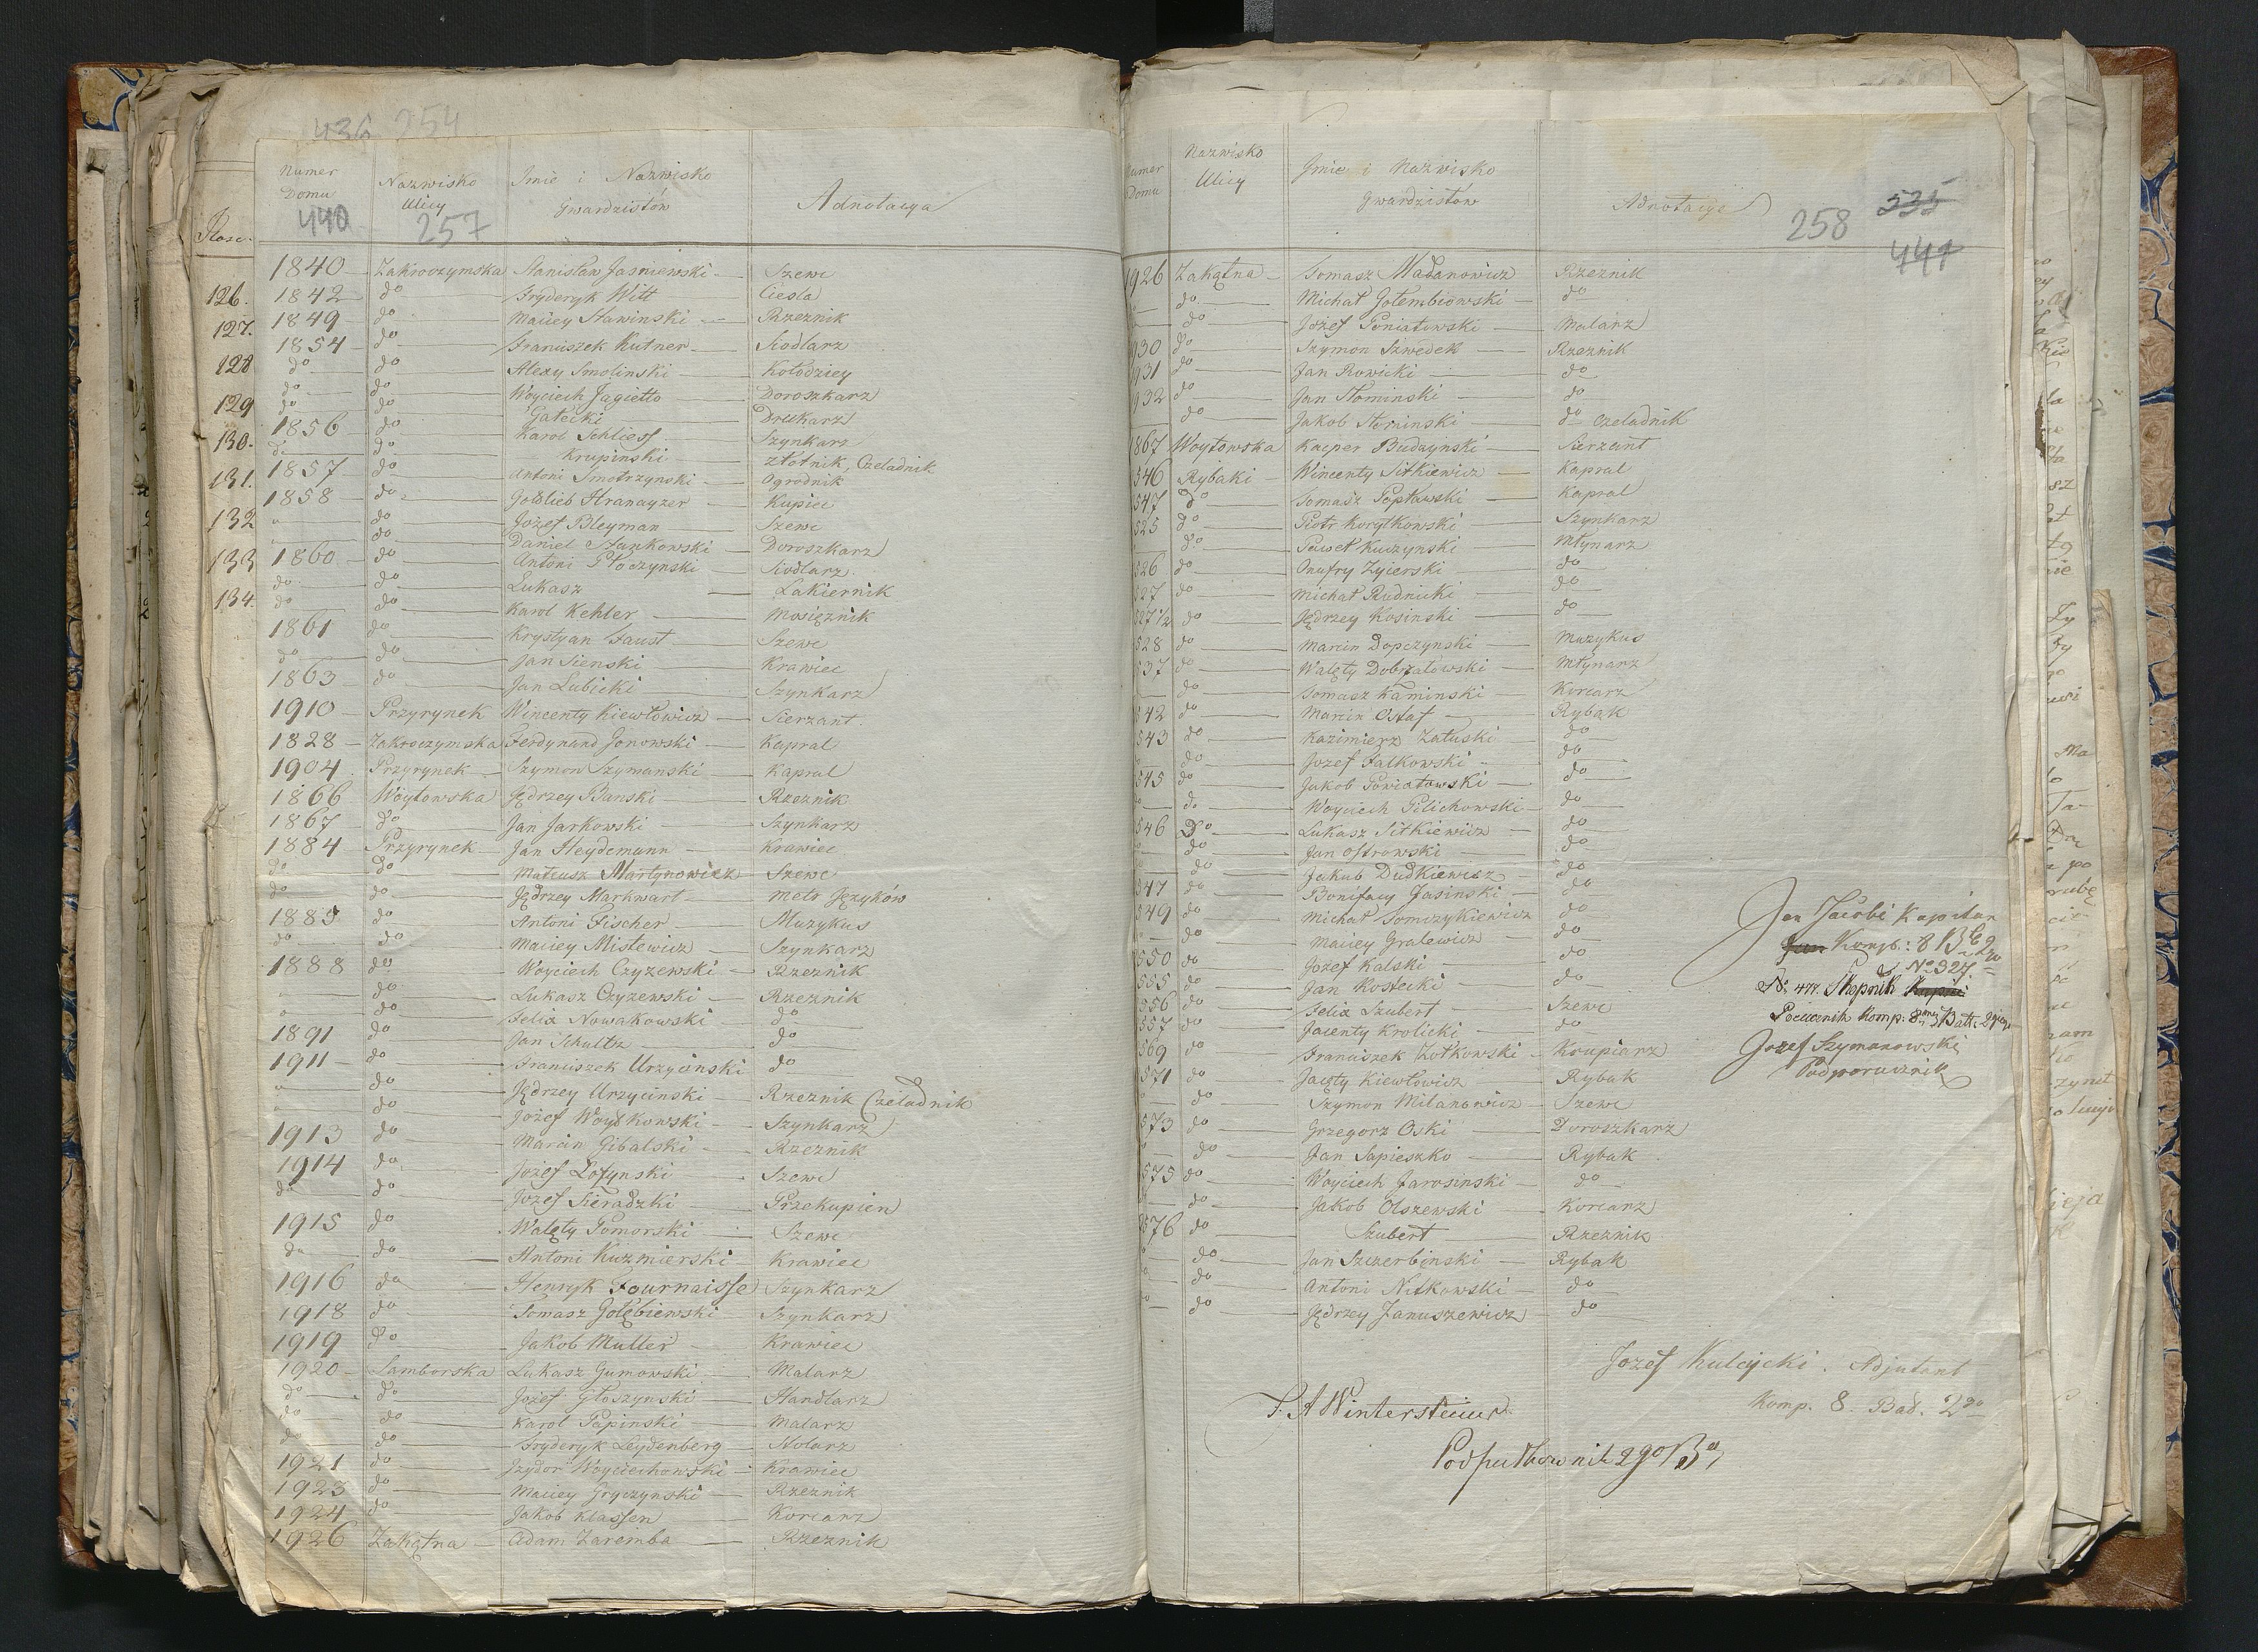 436 254
Numer Domu Nazwisko Ulicy Imie i Nazwisko Gwardzistów Adnotacya
440 257
1840 Zakroczymska Stanisław Jasniewski Szewc
1842 do Fryderyk Witt Ciesla
1849 do Maciey Sławinski Rzeznik
1854 do Franciszek Kutner Siodlarz
do do Alexy Smolinski Kołodziey
do do Woyciech Jagiełło Doroszkarz
do do Gałecki Drukarz
1856 do Karol Schliess Szynkarz
do do Krupinski złotnik, Czeladnik
1857 do Antoni Smotrzynski Ogrodnik
1858 do Gottlieb Hranayzer Kupiec
" do Jozef Bleyman Szewc
" do Daniel Stankowski Doroszkarz
1860 do Antoni Płoczynski Siodlarz
do do Łukasz Lakiernik
do do Karol Kehler Mosięznik
1861 do Krystyan Faust Szewc
do do Jan Sienski Krawiec
1863 do Jan Lubicki Szynkarz
1910 Przyrynek Wincenty Kiewłowicz Sierzant.
1828 Zakroczymska Ferdynand Jonowski Kapral
1904 Przyrynek Szymon Szymanski Kapral
1866 Woytowska Jędrzey Banski Rzeznik
1867 do Jan Jarkowski Szynkarz
1884 Przyrynek Jan Heydemann Krawiec
do do Mateusz Martynowicz Szewc
do do Jędrzey Markwart Metr Języków
1885 do Antoni Fischer Muzykus
do do Maciey Mistewicz Szynkarz
1888 do Woyciech Czyzewski Rzeznik
" do Lukasz Czyzewski Rzeznik
" do Felix Nowakowski do
1891 do Jan Schultz do
1911 do Franciszek Urzycinski do
" do Jędrzey Urzycinski Rzeznik Czeladnik
" do Jozef Woytkowski Szynkarz
1913 do Marcin Gibalski Rzeznik
1914 do Jozef Lofynski Szewc
do do Jozef Sieradzki Przekupien
1915 do Walęty Pomorski Szewc
do do Antoni Kuzmierski Krawiec
1916 do Henryk Fournaisse Szynkarz
1918 do Tomasz Gołębiewski Szynkarz
1919 do Jakob Muller Krawiec
1920 Samborska Lukasz Gumowski Malarz
do do Jozef Głoszynski Handlarz
do do Karol Papinski Malarz
do do Fryderyk Leydenberg Stolarz
1921 do Jzydor Woyciechowski Krawiec
1923 do Maciey Gryczynski Rzeznik
1924 do Jakob Klassen Korcarz
1926 Zakątna Adam Zaremba Rzeznik
126.
127.
128
129
130.
131.
132
133
134.
Numer Domu Nazwisko Ulicy Jmie i Nazwisko Gwardzistów Adnotacye
258 535
441
1926 Zakątna Tomasz Madanowicz Rzeznik
do Michał Gołembiowski do
do Józef Poniatowski Malarz
930 do Szymon Szwedek Rzeznik
931 do Jan Rowicki do
932 do Jan Słominski do
do Jakob Słominski do czeladnik
1867 Woytowska Kacper Budzynski Sierzant
546 Rybaki Wincenty Sitkiewicz Kapral
547 do Tomasz Popławski Kapral
525 do Piotr Korytkowski Szynkarz
do Paweł Kuczynski Młynarz
526 do Onufry Zgierski do
527 do Michał Rudnicki do
527 1/2 do Jędrzey Kosinski do
528 do Marcin Dopczynski Muzykus
537 do Walęty Dobrzałowski Młynarz
do Tomasz Kaminski Korcarz
542 do Marcin Ostaf Rybak
543 do Kazimierz Załuski do
do Jozef Falkowski do
545 do Jakob Powiatowski do
do Woyciech Pilichowski do
546 do Lukasz Sitkiewicz do
do Jan Ostrowski do
do Jakub Dudkiewicz do
547 do Bonifacy Jasinski do
549 do Michał Tomczykiewicz do
do Maciey Gralewicz do
550 do Jozef Kalski do
555 do Jan Kostecki do
556 do Felix Szubert Szewc
557 do Jacenty Krolicki do
569 do Franciszek Zołkowski Krupiarz
571 do Jacęty Kiewłowicz Rybak
do Szymon Milanowicz Szewc
573 do Grzegorz Oski Doroszkarz
do Jan Sapieszko Rybak
575 do Woyciech Jarosinski do
do Jakob Olszewski Korcarz
576 do Szubert Rzeznik
do Jan Szczerbinski Rybak
do Antoni Nitkowski do
do Jędrzey Januszewicz do
Jan Jacobi Kapitan
Komp: 8 B 2go
No 327.
No 477. Skopnik
Porucznik Komp: 8mey Batt: 2go
Jozef Szymanowski
Podporucznik
Jozef Kulczycki. Adjutant
Komp. 8. Bat. 2go
Wintersteiner
Podpułkownik 2go B